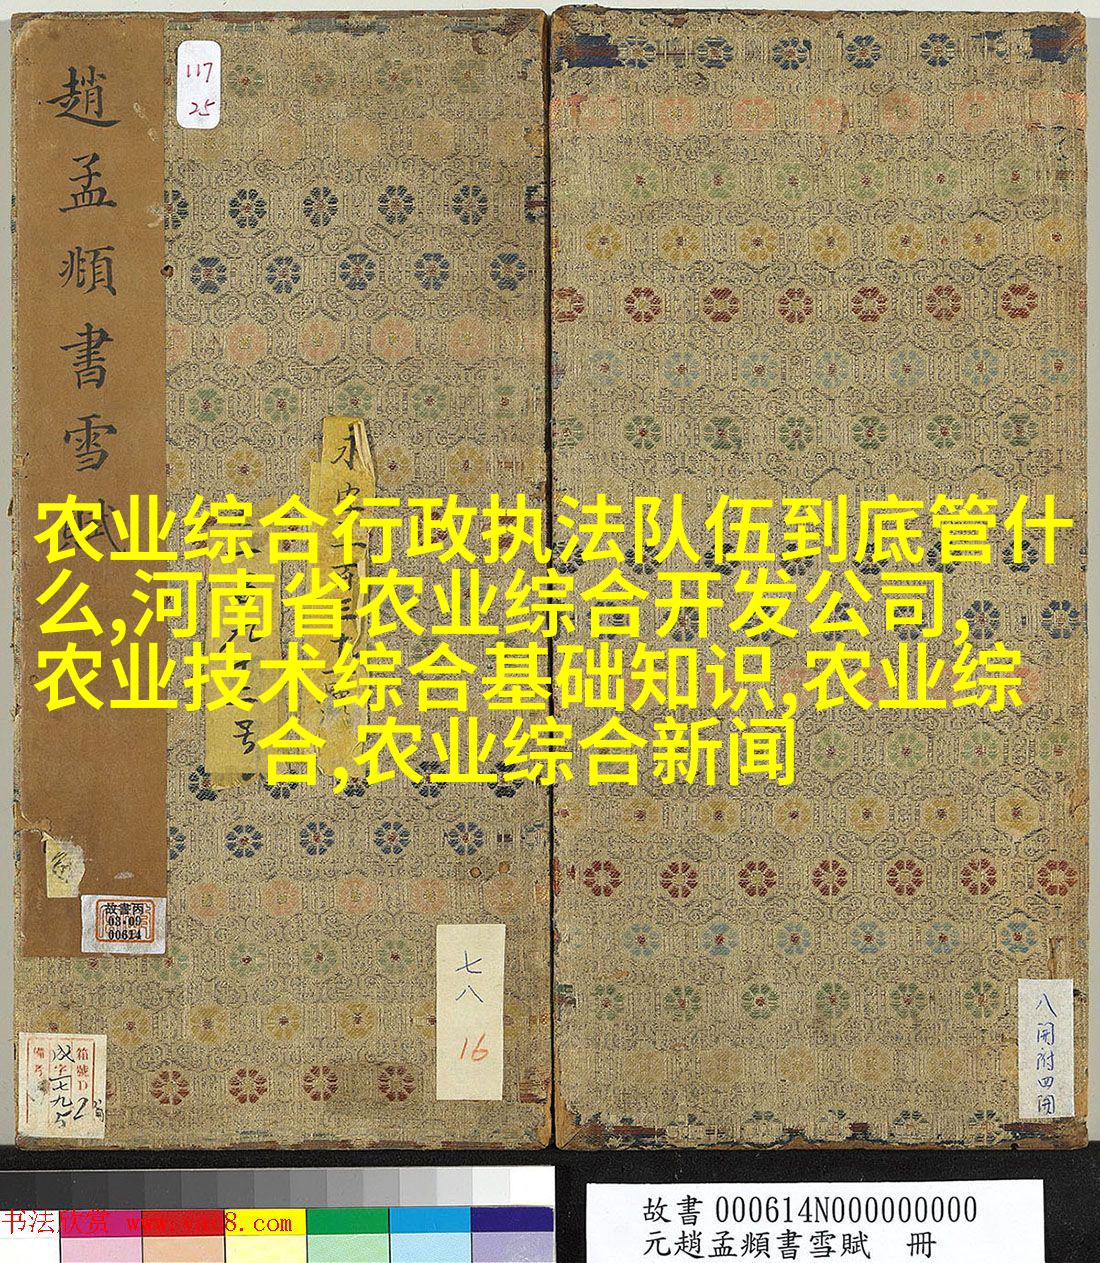 趙孟頫書雪賦
117
25
农业综合行政执法队伍到底管什
么,河南省农业综合开发公司,
农业技术综合基础知识,农业综
合,农业综合新闻
号
故書丙
03-09
00614
七八
16
箱號D
備考
八開附四開
书法欣赏 www.yac8.com
故書 000614N000000000
元趙孟頫書雪賦 冊